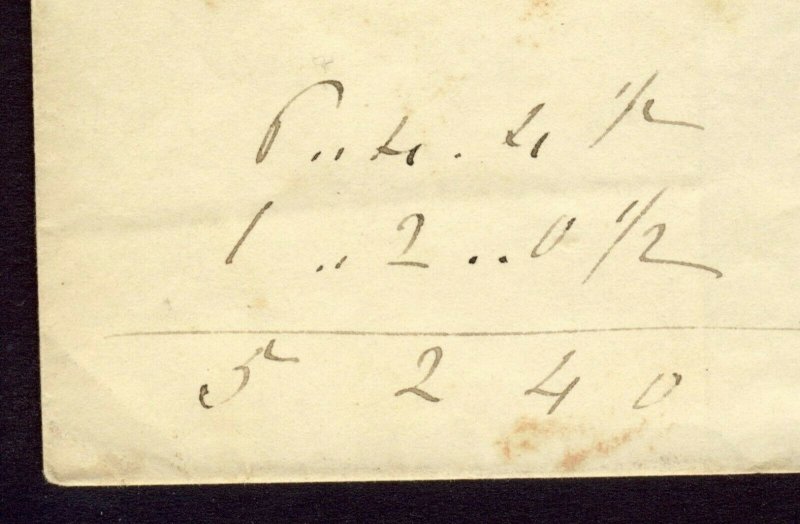 6 .. 4 . 4 1/2
1 .. 2 .. 0 1/2
5 2 4 0